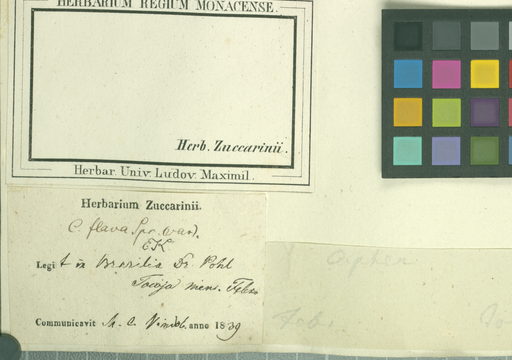 HERBARIUM REGIUM MONACENSE.
Herb. Zuccarinii.
Herbar. Univ. Ludov. Maximil.
Herbarium Zuccarinii.
C. flava Spr. (var).
EK.
Legit in Brasilia Dr. Pohl
mens.
Communicavit M. C. Vindob. anno 1839